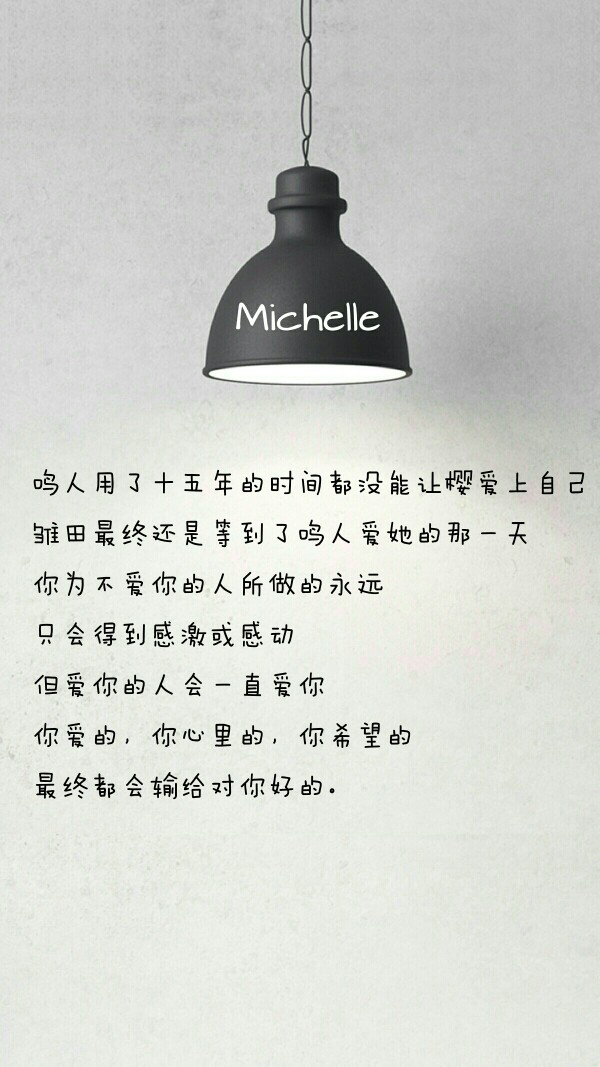 Michelle
鸣人用了十五年的时间都没能让樱爱上自己
雏田最终还是等到了鸣人爱她的那一天
你为不爱你的人所做的永远
只会得到感激或感动
但爱你的人会一直爱你
你爱的，你心里的，你希望的
最终都会输给对你好的。